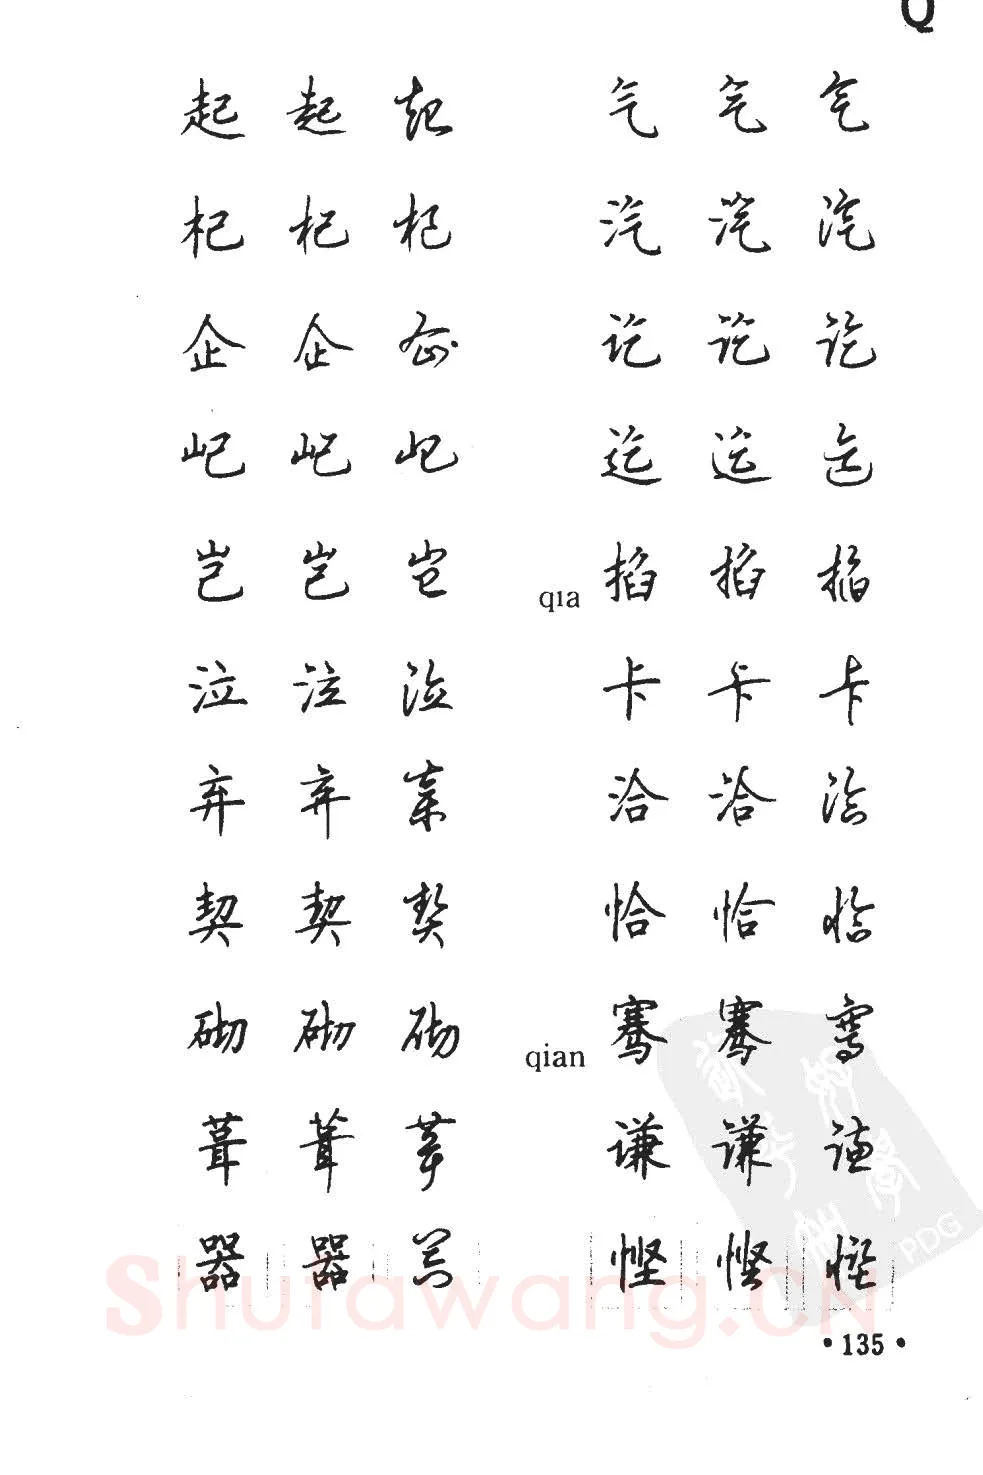 Q
起 起 起 气 气 气
杞 杞 杞 汽 汽 汽
企 企 企 讫 讫 讫
屺 屺 屺 迄 迄 迄
岂 岂 岂 qia 掐 掐 掐
泣 泣 泣 卡 卡 卡
弃 弃 弃 洽 洽 洽
契 契 契 恰 恰 恰
砌 砌 砌 qian 骞 骞 骞
葺 葺 葺 谦 谦 谦
器 器 器 悭 悭 悭
Shufawang.CN
PDG
•135•